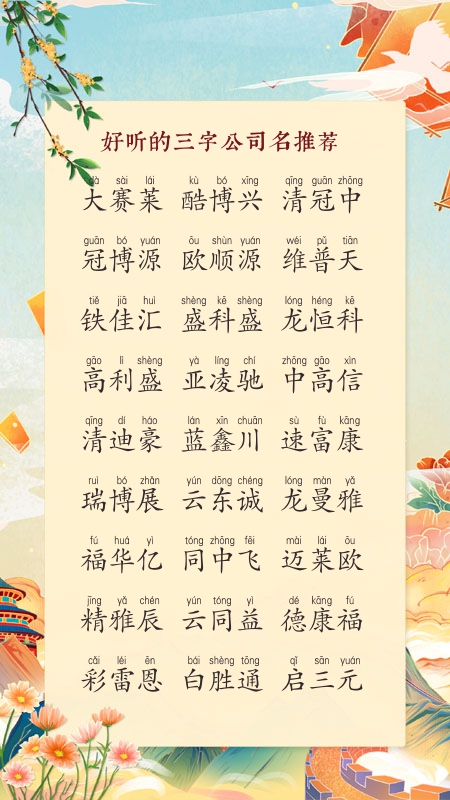 好听的三字公司名推荐
dà sài lái kù bó xīng qīng guān zhōng
大赛莱 酷博兴 清冠中
guān bó yuán ōu shùn yuán wéi pǔ tiān
冠博源 欧顺源 维普天
tiě jiā huì shèng kē shèng lóng héng kē
铁佳汇 盛科盛 龙恒科
gāo lì shèng yà líng chí zhōng gāo xìn
高利盛 亚凌驰 中高信
qīng dí háo lán xīn chuān sù fù kāng
清迪豪 蓝鑫川 速富康
ruì bó zhǎn yún dōng chéng lóng màn yǎ
瑞博展 云东诚 龙曼雅
fú huá yì tóng zhōng fēi mài lái ōu
福华亿 同中飞 迈莱欧
jīng yǎ chén yún tóng yì dé kāng fú
精雅辰 云同益 德康福
cǎi léi ēn bái shèng tōng qǐ sān yuán
彩雷恩 白胜通 启三元